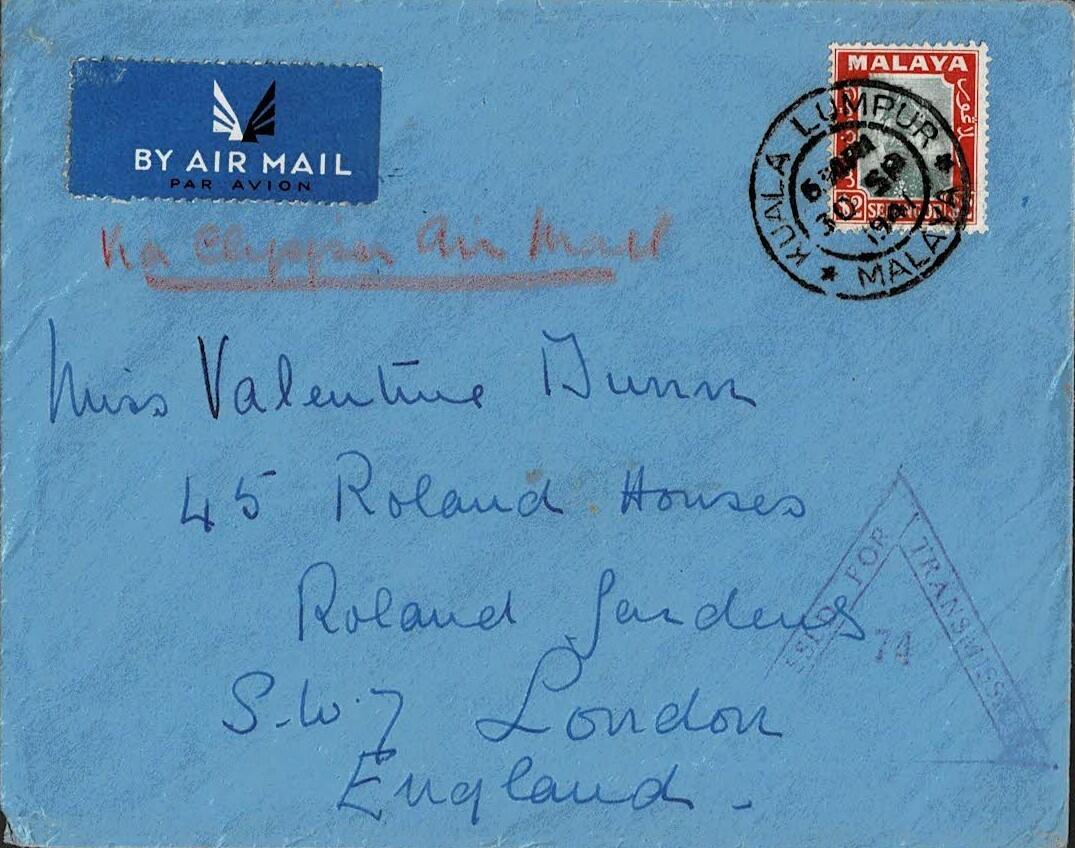 MALAYA
BY AIR MAIL
PAR AVION
KUALA LUMPUR
30 SP
1941
$2
MALAYA
Via Clipper Air Mail
Miss Valentine Dunn
45 Roland Houses
Roland Gardens
S.W.7 London
England
FOR TRANSMISS
74